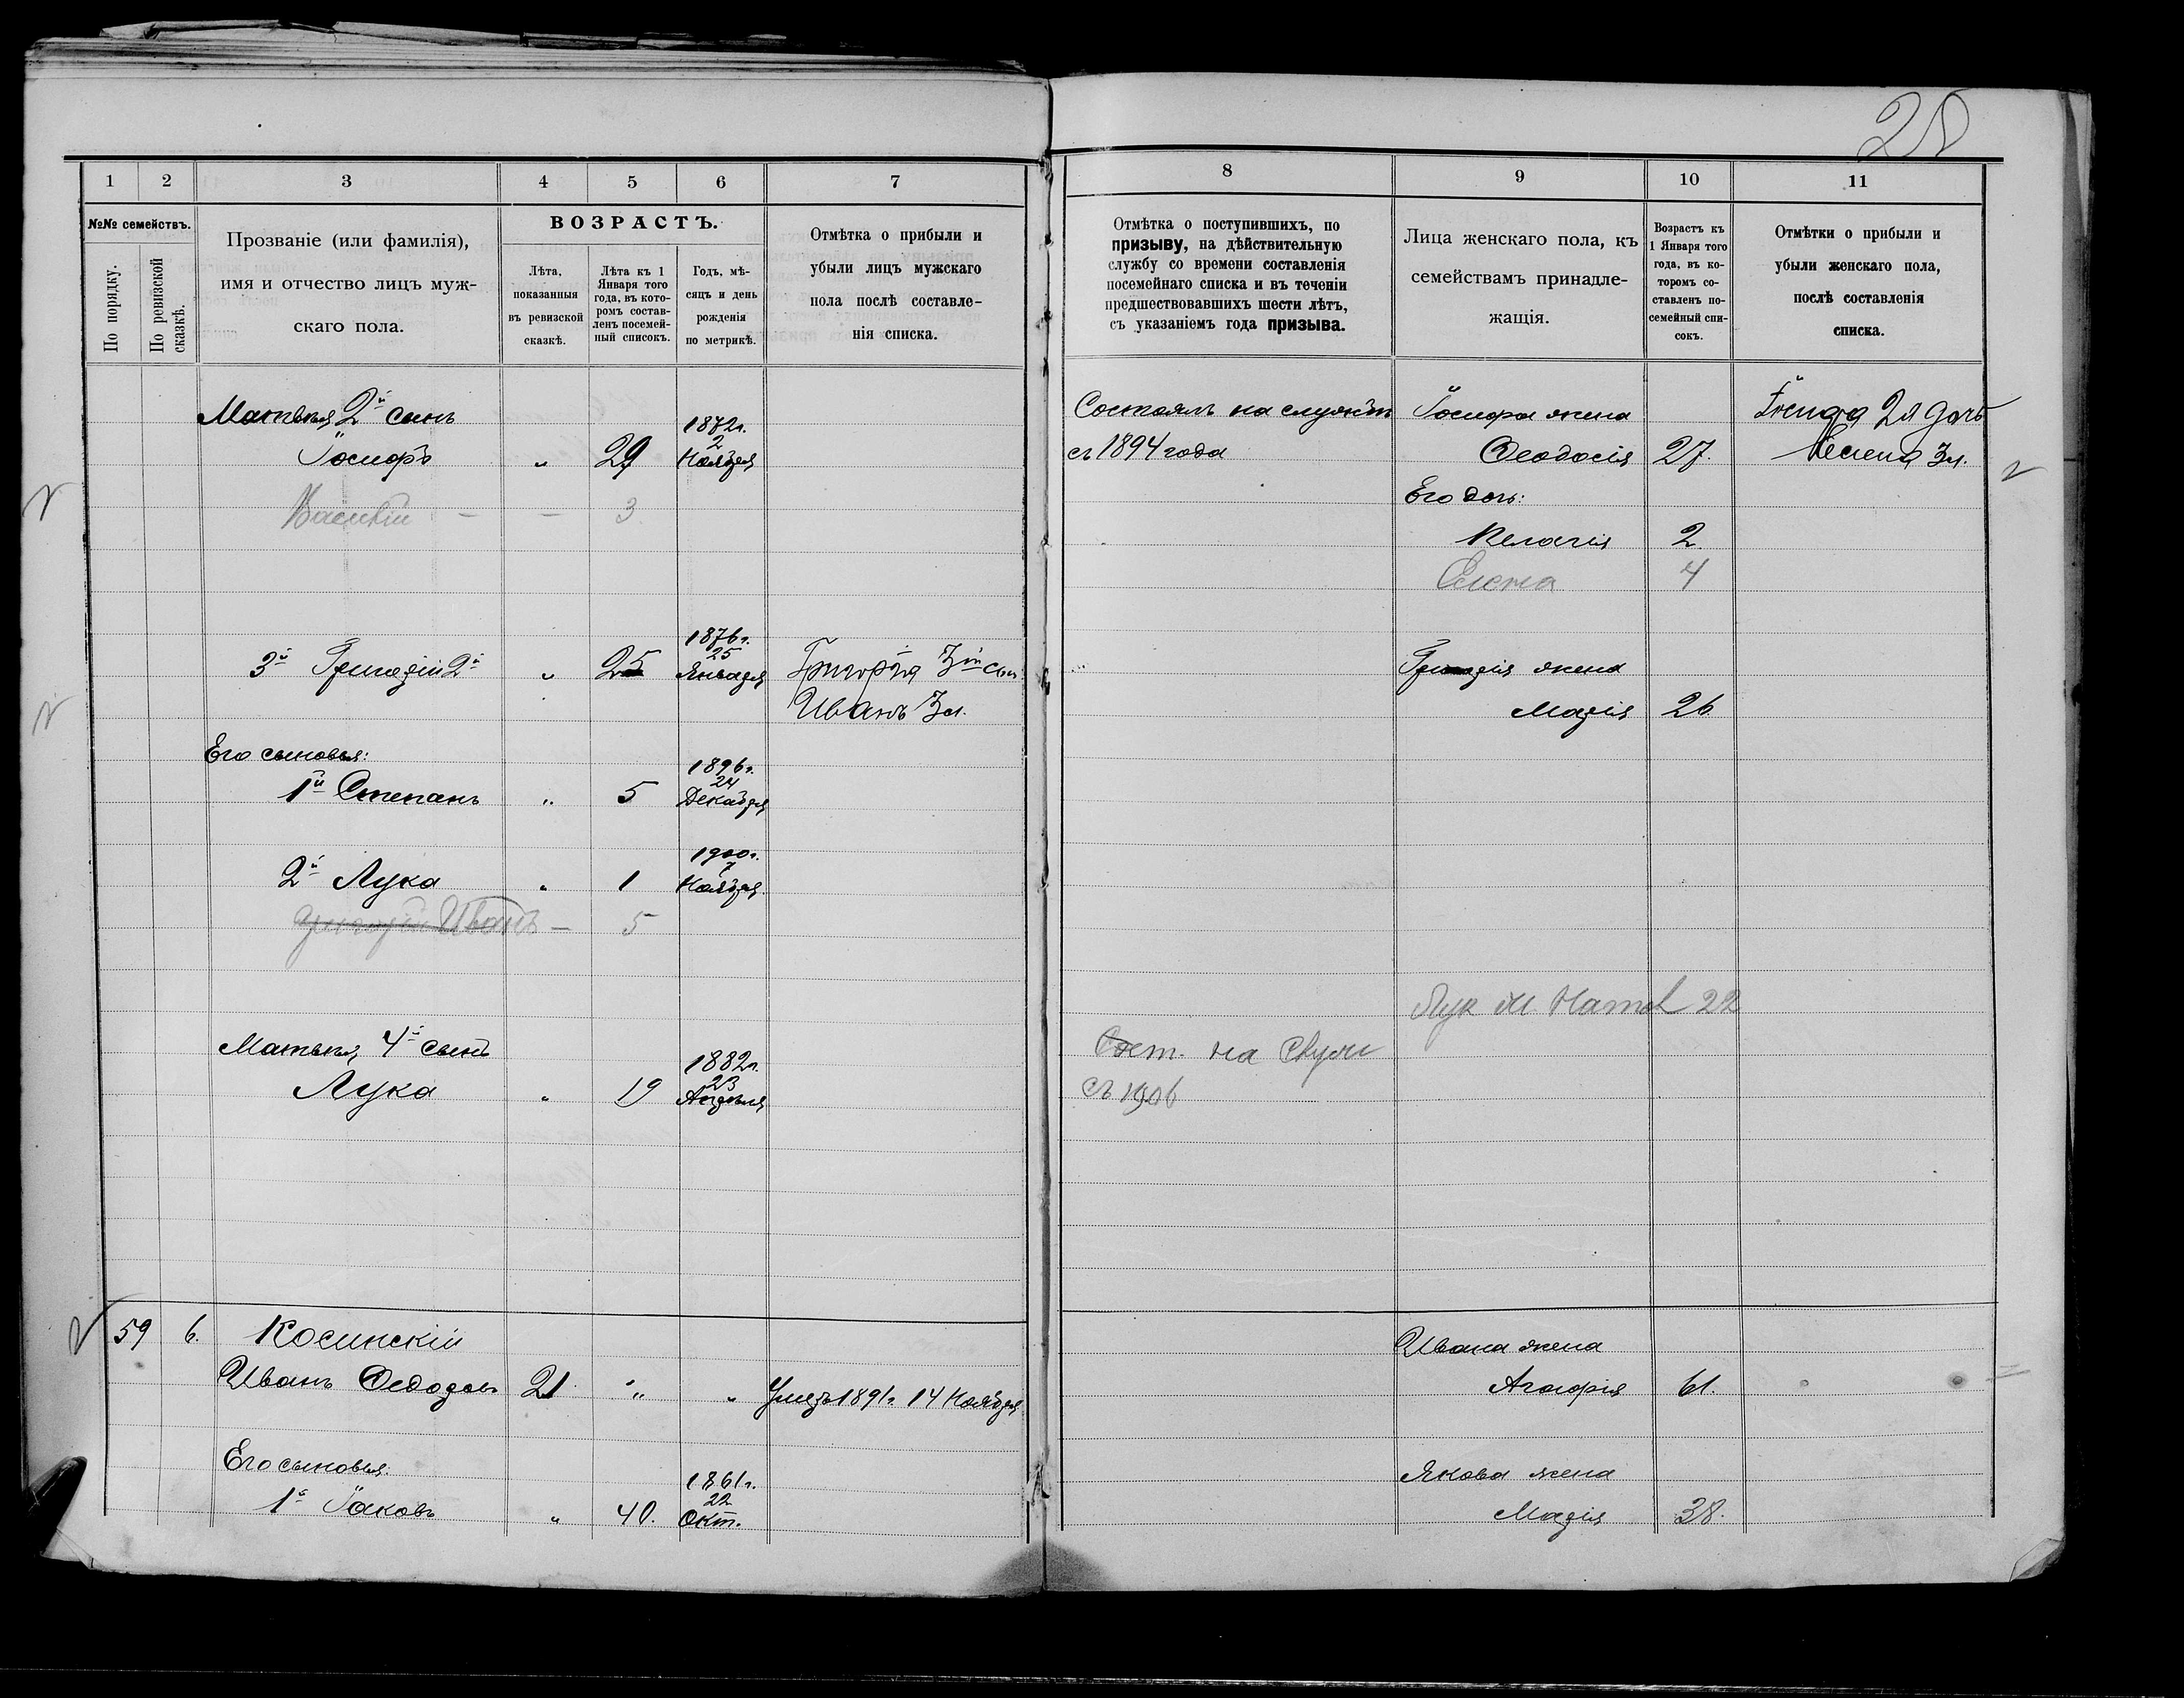 28
1 2 3 4 5 6 7
№№ семействъ.
По порядку.
По ревизской сказкѣ.
Прозваніе (или фамилія),
имя и отчество лицъ муж-
скаго пола.
ВОЗРАСТЪ.
Лѣта,
показанныя
въ ревизской
сказкѣ.
Лѣта къ 1
Января того
года, въ кото-
ромъ состав-
ленъ посемей-
ный списокъ.
Годъ, мѣ-
сяцъ и день
рожденія
по метрикѣ.
Отмѣтка о прибыли и
убыли лицъ мужскаго
пола послѣ составле-
нія списка.
Матвѣя 2й сынъ
1872г.
2
Іосифъ " 29 Ноября
Василій — — 3
1876г.
25
3й Григорій 2й " 25 Января Григорія 3й сын
Иванъ 3л.
Его сыновья:
1896г.
24
1й Степанъ " 5 Декабря
1900г.
2й Лука " 1 Ноября
Григорій Иванъ — 5
Матвѣя, 4й сынъ
1882г.
23
Лука " 19 Апрѣля
59 6. Косинскій
Иванъ Ѳедоровъ 21 " " Умеръ 1891г. 14 Ноября
Его сыновья:
1861г.
22
1й Іаковъ " 40. Окт.
8 9 10 11
Отмѣтка о поступившихъ, по
призыву, на дѣйствительную
службу со времени составленія
посемейнаго списка и въ теченіи
предшествовавшихъ шести лѣтъ,
съ указаніемъ года призыва.
Лица женскаго пола, къ
семействамъ принадле-
жащія.
Возрастъ къ
1 Января того
года, въ ко-
торомъ со-
ставленъ по-
семейный спи-
сокъ.
Отмѣтки о прибыли и
убыли женскаго пола,
послѣ составленія
списка.
Состоялъ на службѣ Іосифа жена Іосифа 2я дочь
съ 1894 года Ѳеодосія 27. Елена 3л.
Его дочь:
Пелагія 2.
Елена 4
Григорія жена
Марія 26
Лук М. Натал 22
Сост. на служ
съ 1906
Ивана жена
Агафія 61.
Якова жена
Марія 38.